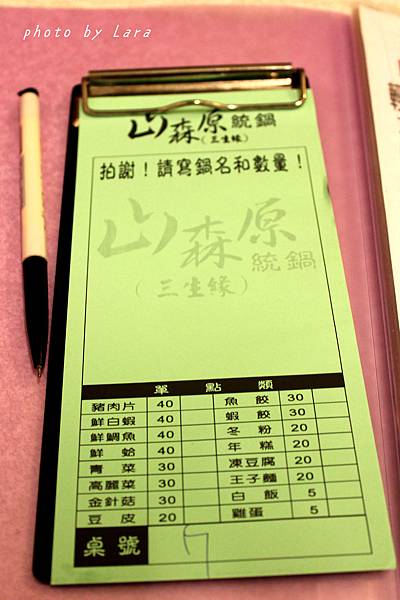 photo by Lara
山森原統鍋
(三生緣)
拍謝！請寫鍋名和數量！
山森原統鍋
(三生緣)
單點類
豬肉片 40 魚餃 30
鮮白蝦 40 蝦餃 30
鮮鯛魚 40 冬粉 20
鮮蛤 40 年糕 20
青菜 30 凍豆腐 20
高麗菜 30 王子麵 20
金針菇 30 白飯 5
豆皮 20 雞蛋 5
桌號 7